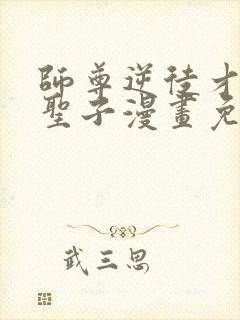 師尊逆徒才
聖子漫畫免
武三思